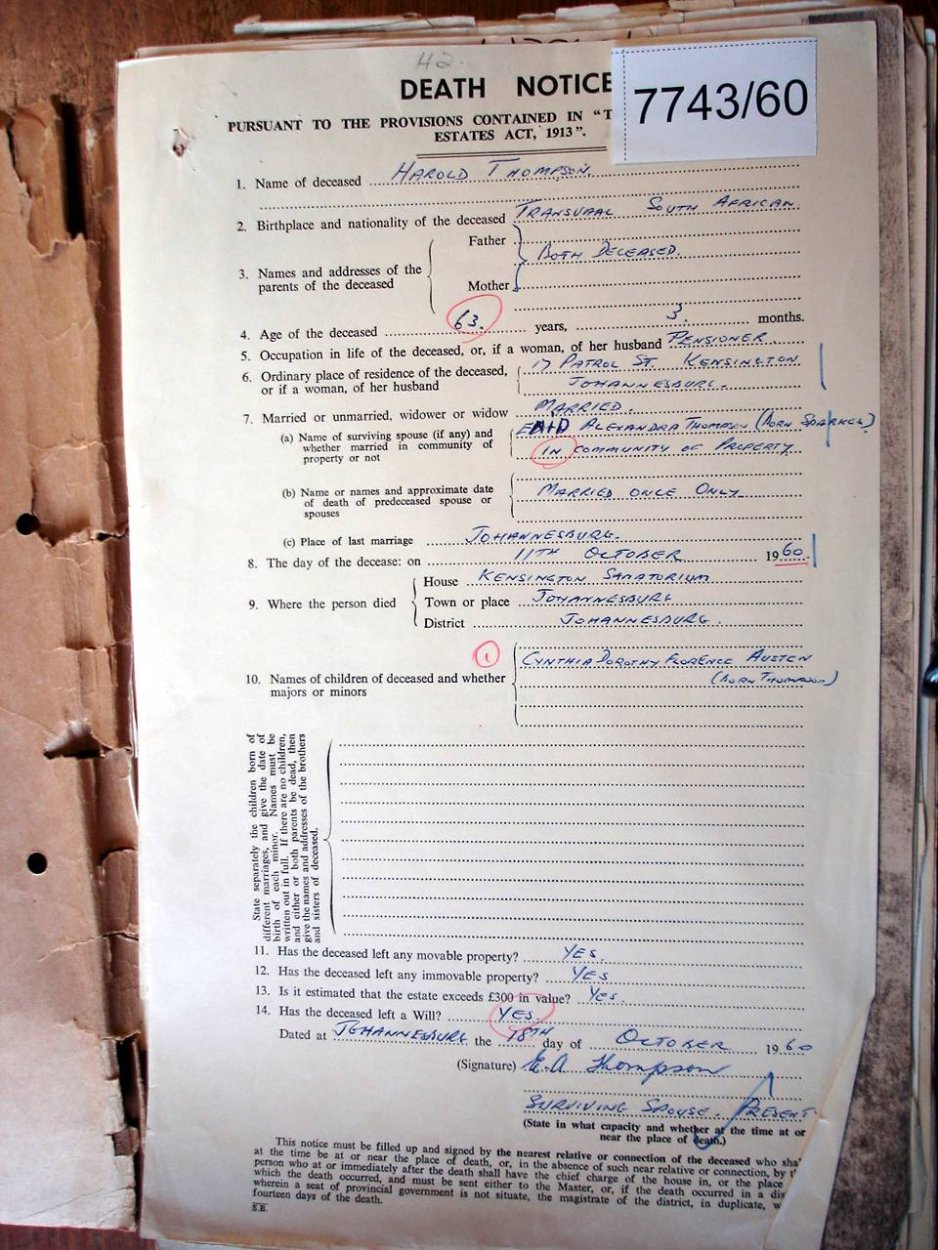 H2.
DEATH NOTICE
7743/60
PURSUANT TO THE PROVISIONS CONTAINED IN “T
ESTATES ACT, 1913”.
1. Name of deceased HAROLD THOMPSON.
2. Birthplace and nationality of the deceased TRANSVAAL SOUTH AFRICAN.
Father
3. Names and addresses of the parents of the deceased BOTH DECEASED.
Mother
4. Age of the deceased 63. years, 3. months.
5. Occupation in life of the deceased, or, if a woman, of her husband PENSIONER.
6. Ordinary place of residence of the deceased, 17 PATROL ST. KENSINGTON
or if a woman, of her husband JOHANNESBURG.
7. Married or unmarried, widower or widow MARRIED.
(a) Name of surviving spouse (if any) and ALEXANDRA THOMPSON (BORN SPARKES)
whether married in community of IN COMMUNITY OF PROPERTY
property or not
(b) Name or names and approximate date MARRIED ONCE ONLY
of death of predeceased spouse or
spouses
(c) Place of last marriage JOHANNESBURG.
8. The day of the decease: on 11TH OCTOBER 1960.
House KENSINGTON SANATORIUM
9. Where the person died Town or place JOHANNESBURG
District JOHANNESBURG.
1
CYNTHIA DOROTHY FLORENCE AUSTEN
10. Names of children of deceased and whether (BORN THOMPSON)
majors or minors
State separately the children born of
different marriages, and give the date of
birth of each minor. Names must be
written out in full. If there are no children,
and either or both parents be dead, then
give the names and addresses of the brothers
and sisters of deceased.
11. Has the deceased left any movable property? YES.
12. Has the deceased left any immovable property? YES
13. Is it estimated that the estate exceeds £300 in value? YES.
14. Has the deceased left a Will? YES.
Dated at JOHANNESBURG the 18TH day of OCTOBER 1960
(Signature) E.A. Thompson
SURVIVING SPOUSE. PRESENT
(State in what capacity and whether at the time at or
near the place of death.)
This notice must be filled up and signed by the nearest relative or connection of the deceased who sha
at the time be at or near the place of death, or, in the absence of such near relative or connection, by t
person who at or immediately after the death shall have the chief charge of the house in, or the place
which the death occurred, and must be sent either to the Master, or, if the death occurred in a dis
wherein a seat of provincial government is not situate, the magistrate of the district, in duplicate, w
fourteen days of the death.
S.B.